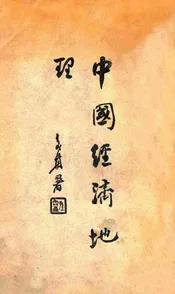 中國經濟地
理
署